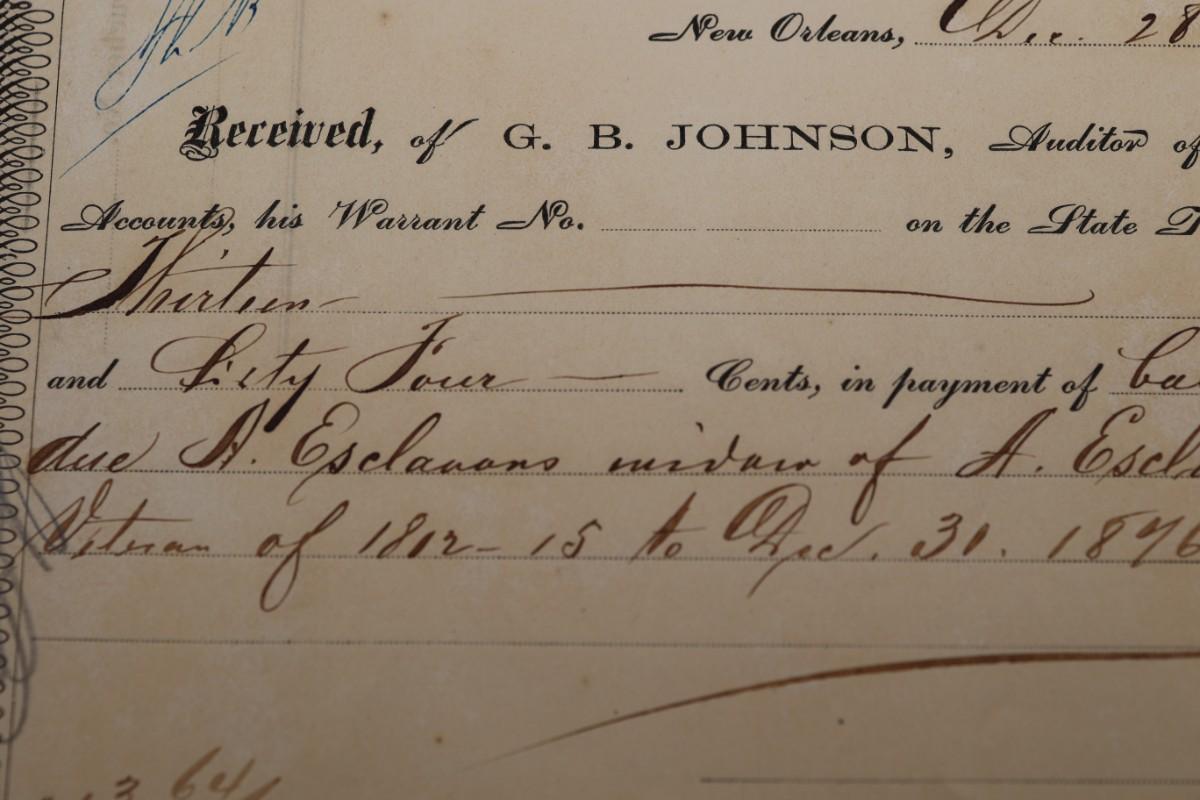 New Orleans, Dec. 28
Received, of G. B. JOHNSON, Auditor of
Accounts, his Warrant No. on the State T
Thirteen
and Sixty Four — Cents, in payment of ba
due A. Esclavons widow of A. Escl
Veteran of 1812-15 to Dec. 31. 1876
13 64/